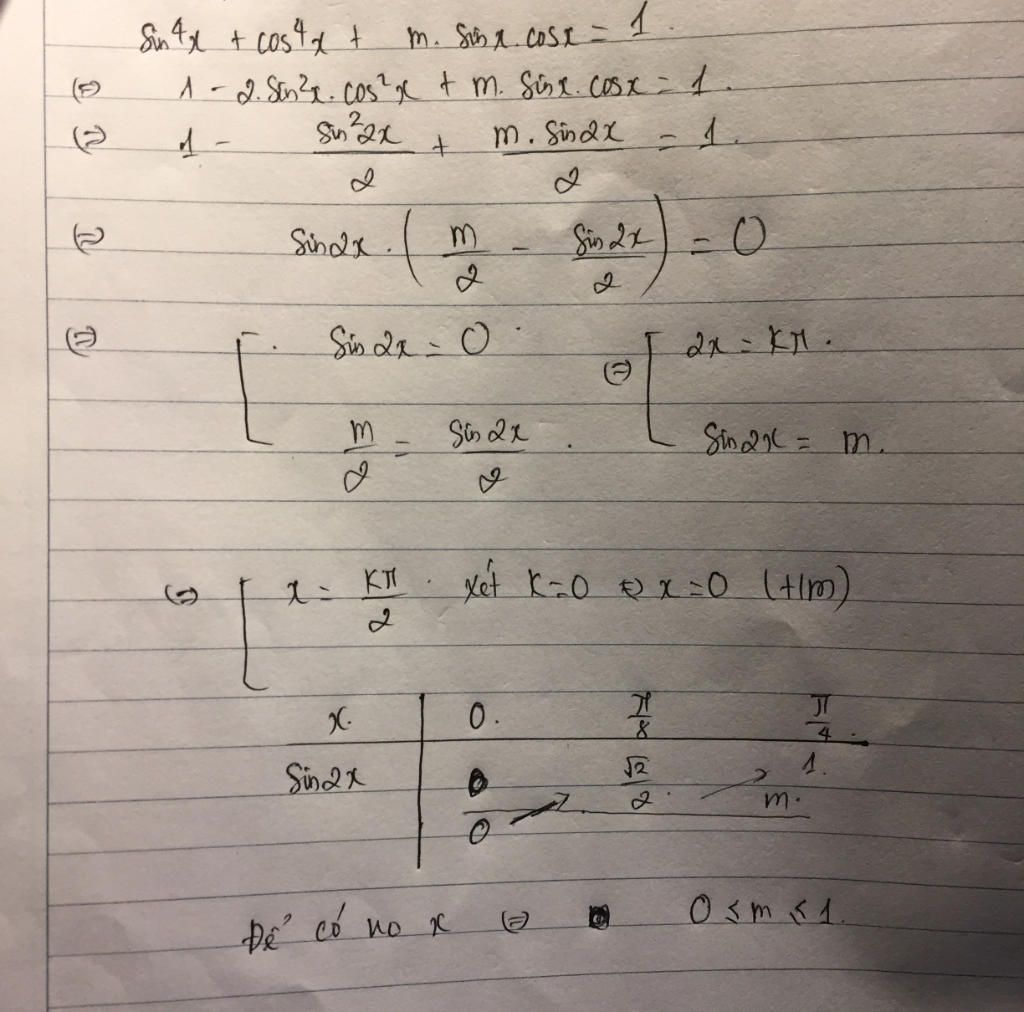 sin⁴x + cos⁴x + m. sinx.cosx = 1.
(=) 1 - 2.sin²x.cos²x + m. sinx.cosx = 1.
(=) 1 - sin²2x/2 + m.sin2x/2 = 1.
(=) sin2x.(m/2 - sin2x/2) = 0
(=) [ . sin2x = 0 . (=) [ 2x = kπ.
m/2 = sin2x/2 . sin2x = m.
(=) [ x = kπ/2 . xét k=0 (=) x=0 (t/m)
x. | 0. π/8 π/4.
sin2x | 0 √2/2. 1.
0 m.
Để có no x (=) 0 ≤ m ≤ 1.